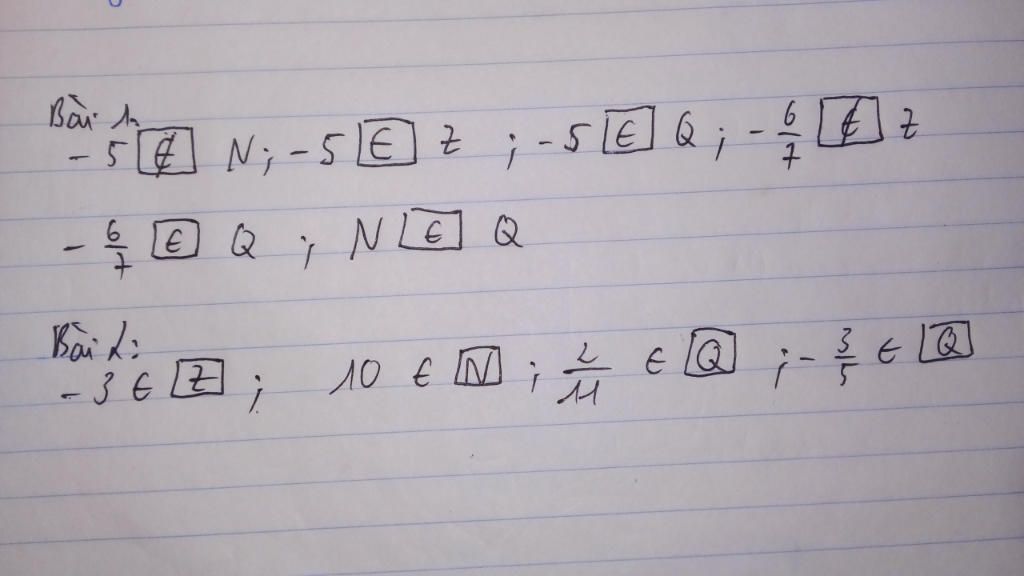 Bài 1:
- 5 ∉ N; - 5 ∈ Z ; - 5 ∈ Q ; - 6/7 ∉ Z
- 6/7 ∈ Q ; N ∈ Q
Bài 2:
- 3 ∈ Z ; 10 ∈ N ; 2/11 ∈ Q ; - 3/5 ∈ Q